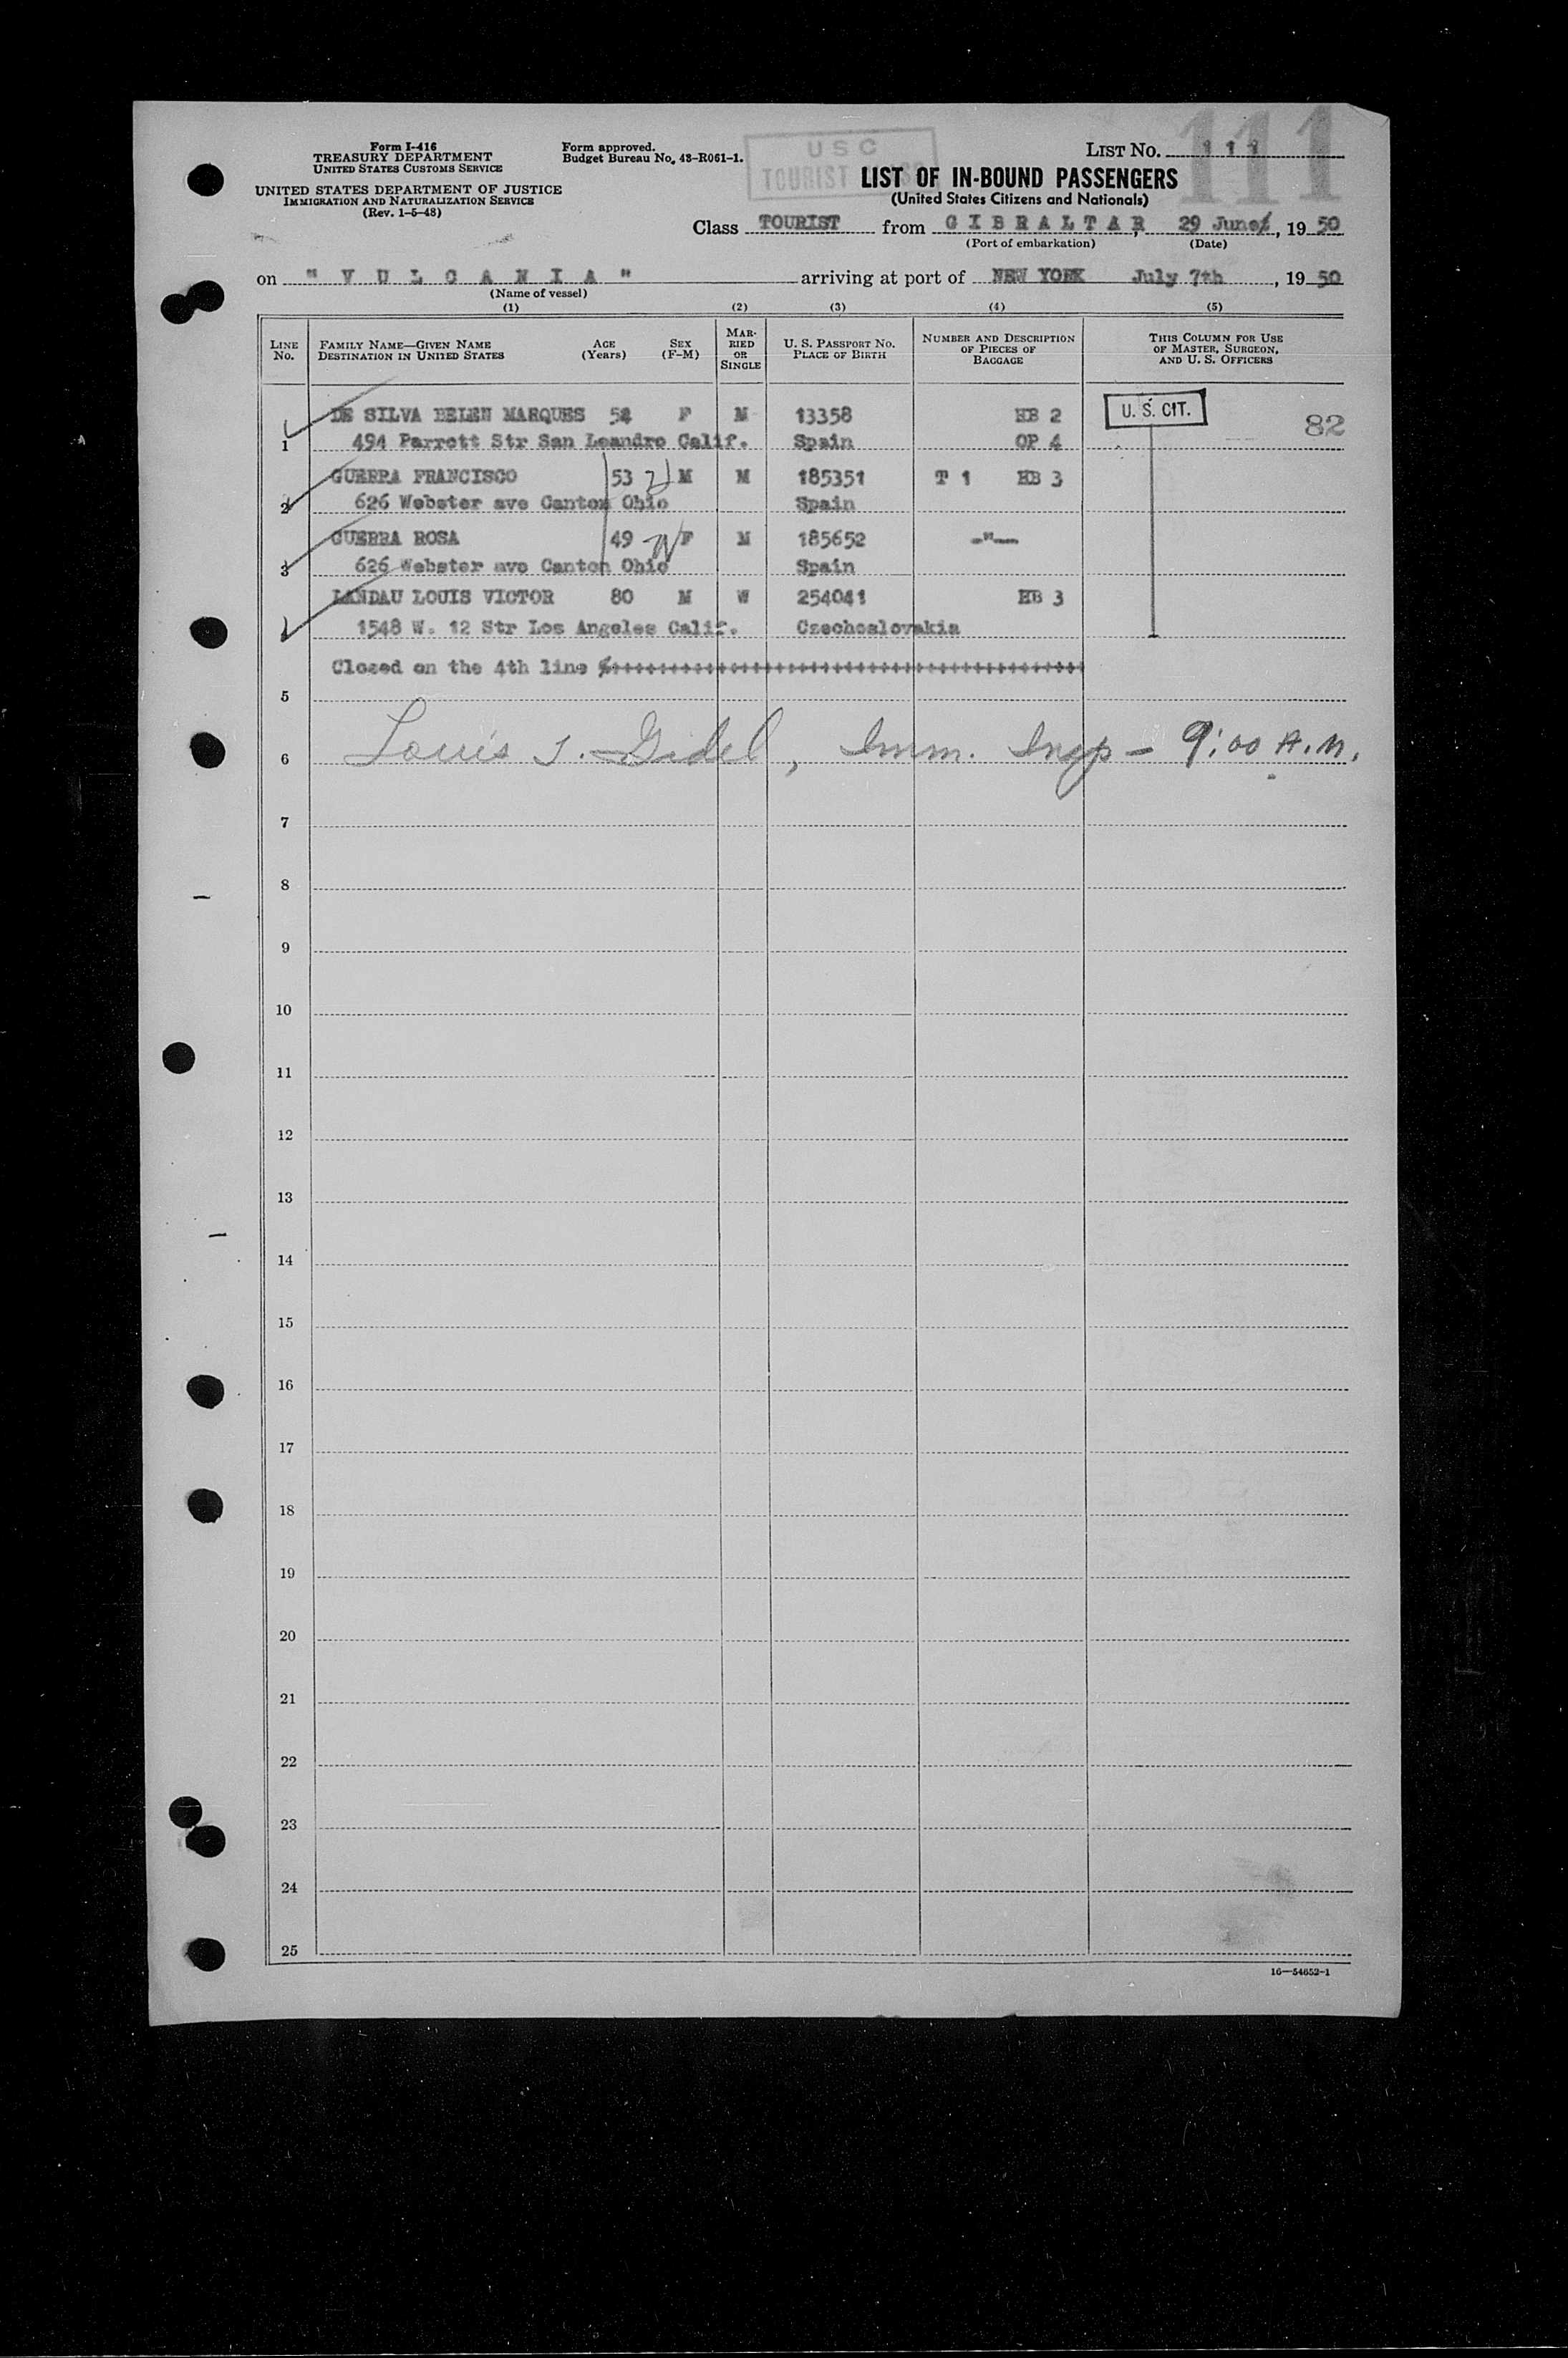 Form I-416
TREASURY DEPARTMENT
UNITED STATES CUSTOMS SERVICE
UNITED STATES DEPARTMENT OF JUSTICE
IMMIGRATION AND NATURALIZATION SERVICE
(Rev. 1-5-48)
Form approved.
Budget Bureau No. 43-R061-1.
USC
TOURIST
111
LIST NO. 111
LIST OF IN-BOUND PASSENGERS
(United States Citizens and Nationals)
Class TOURIST from GIBRALTAR, 29 June, 19 50
(Port of embarkation) (Date)
on "VULCANIA" arriving at port of NEW YORK July 7th, 19 50
(Name of vessel)
(1) (2) (3) (4) (5)
LINE NO. FAMILY NAME—GIVEN NAME DESTINATION IN UNITED STATES AGE (Years) SEX (F-M) MARRIED OR SINGLE U. S. PASSPORT NO. PLACE OF BIRTH NUMBER AND DESCRIPTION OF PIECES OF BAGGAGE THIS COLUMN FOR USE OF MASTER, SURGEON, AND U. S. OFFICERS
DE SILVA BELEN MARQUES 54 F M 13358 HB 2 U. S. CIT. 82
1 494 Parrott Str San Leandro Calif. Spain OP 4
GUERRA FRANCISCO 53 M M 185351 T 1 HB 3
2 626 Webster ave Canton Ohio Spain
GUERRA ROSA 49 F M 185652 -"-
3 626 Webster ave Canton Ohio Spain
LANDAU LOUIS VICTOR 80 M W 254041 HB 3
1548 W. 12 Str Los Angeles Calif. Czechoslovakia
Closed on the 4th line
5
6 Louis J. Gidel, Imm. Insp - 9:00 A.M.
7
8
9
10
11
12
13
14
15
16
17
18
19
20
21
22
23
24
25
16—54652-1